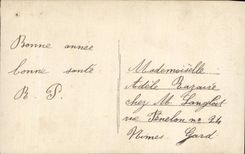 Bonne année
bonne santé
R. P.
Mademoiselle
Adèle
chez M.
rue Fénelon no 24
Nimes Gard